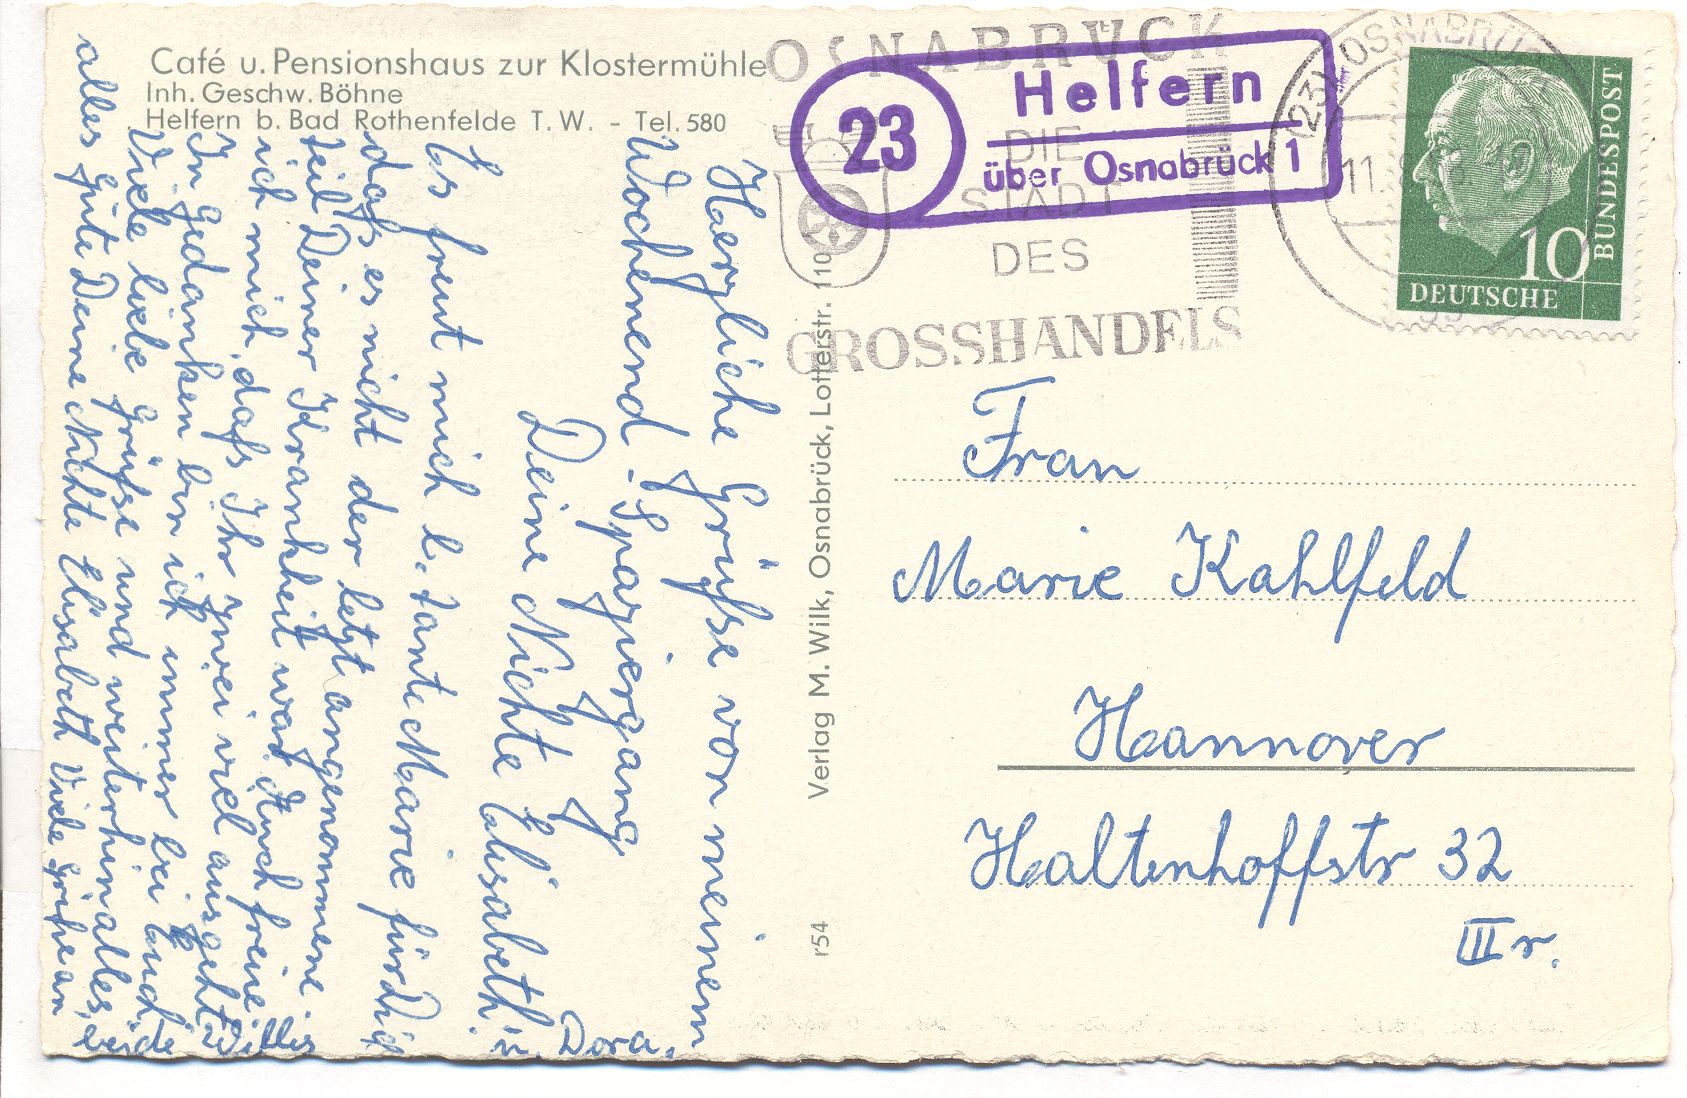 Café u. Pensionshaus zur Klostermühle
Inh. Geschw. Böhne
Helfern b. Bad Rothenfelde T.W. - Tel. 580
OSNABRÜCK
DIE
STADT
DES
GROSSHANDELS
23
Helfern
über Osnabrück 1
(23) OSNABRÜCK
11.
DEUTSCHE
BUNDESPOST
10
Herzliche Grüße von meinem
Wochenend-Spaziergang
Deine Nichte Elisabeth.
u. Dora.
Es freut mich l. Tante Marie für Dich
daß es nicht der letzt angenommene
teil Deiner Krankheit war. Auch freue
ich mich, daß Ihr zwei viel ausgeht
In Gedanken bin ich immer bei Euch
Viele liebe Grüße und weiterhin alles,
alles Gute Deine Nichte Elisabeth Viele Grüße an
beide
Willis
Verlag M. Wilk, Osnabrück, Lotterstr. 110
r54
Frau
Marie Kahlfeld
Hannover
Haltenhoffstr 32
III r.